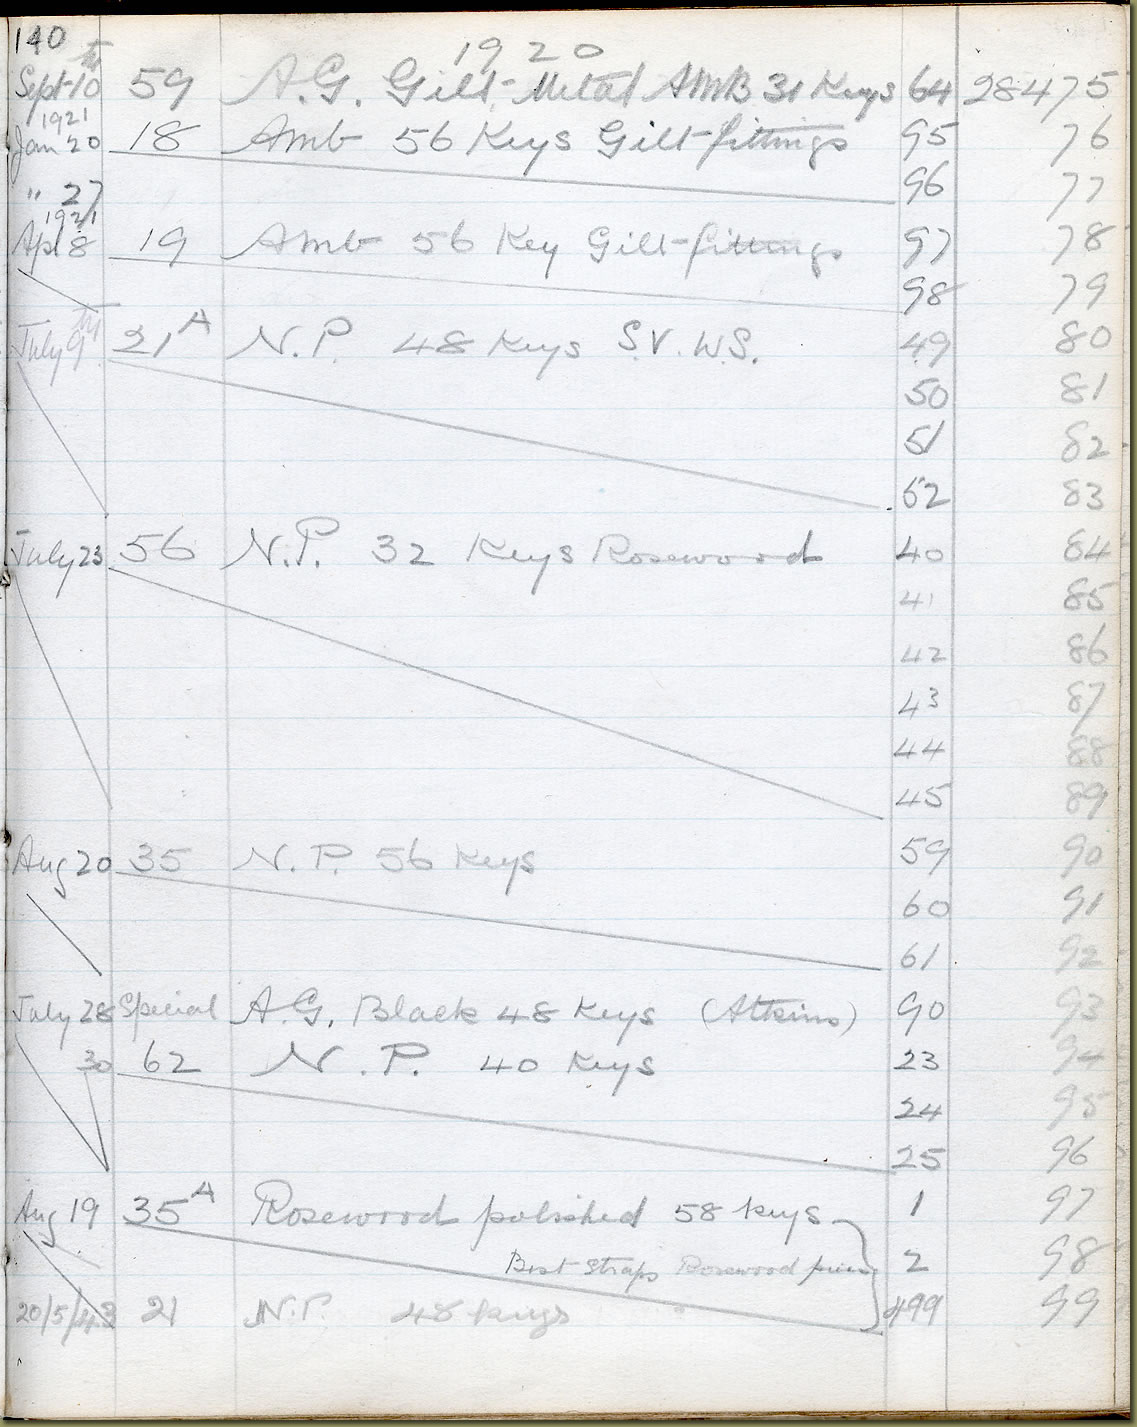 140
1920
Sept 10th 59 A.G. Gilt-Metal AMB 31 Keys 64 28475
1921
Jan 20 18 Amb 56 Keys Gilt-fittings 95 76
" 27 96 77
1921
Apl 8 19 Amb 56 Key Gilt-fittings 97 78
98 79
July 9th 21A N.P. 48 Keys S.V. W.S. 49 80
50 81
51 82
52 83
July 23 56 N.P. 32 Keys Rosewood 40 84
41 85
42 86
43 87
44 88
45 89
Aug 20 35 N.P. 56 Keys 59 90
60 91
61 92
July 28 Special A.G. Black 48 Keys (Atkins) 90 93
30 62 N.P. 40 Keys 23 94
24 95
25 96
Aug 19 35A Rosewood polished 58 Keys 1 97
Best Straps Rosewood 2 98
20/5/43 21 N.P. 48 keys 499 99